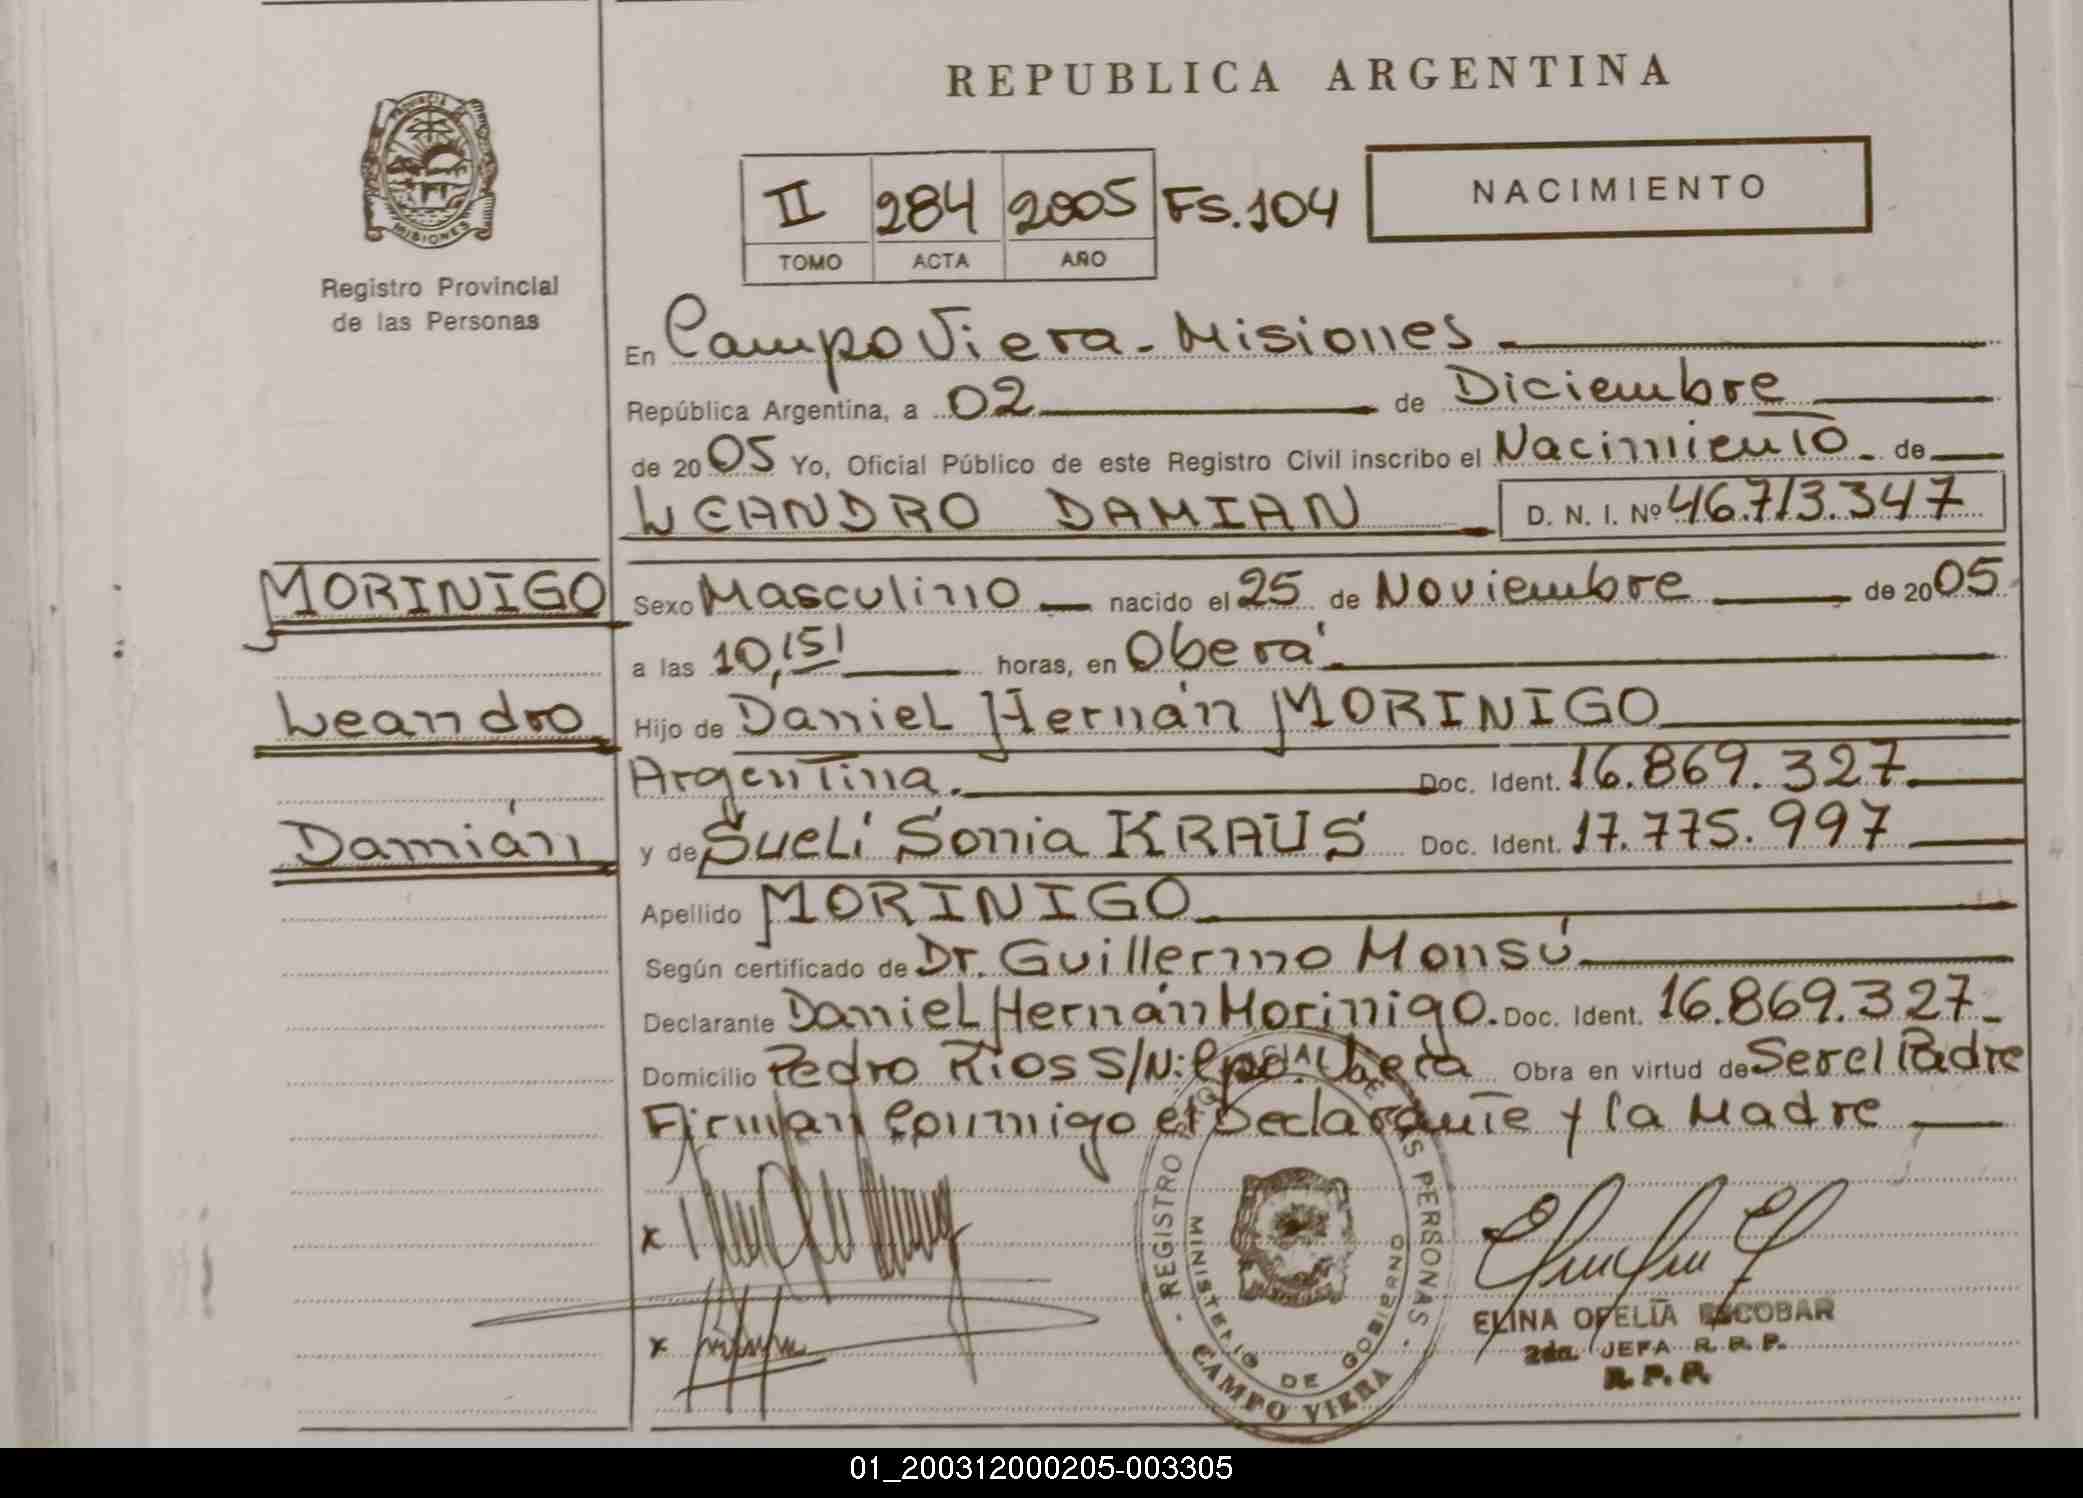 REPUBLICA ARGENTINA
PROVINCIA DE MISIONES
Registro Provincial
de las Personas
II 284 2005 Fs.104
TOMO ACTA AÑO
NACIMIENTO
En Campo Viera - Misiones
República Argentina, a 02 de Diciembre
de 2005 Yo, Oficial Público de este Registro Civil inscribo el Nacimiento de
LEANDRO DAMIAN D. N. I. Nº 46.713.347
MORINIGO
Leandro
Damián
Sexo Masculino nacido el 25 de Noviembre de 2005
a las 10,15 horas, en Oberá
Hijo de Daniel Hernán MORINIGO
Argentina. Doc. Ident. 16.869.327
y de Suelí Sonia KRAUS Doc. Ident. 17.775.997
Apellido MORINIGO
Según certificado de Dr. Guillermo Monsú
Declarante Daniel Hernán Morinigo. Doc. Ident. 16.869.327
Domicilio Pedro Rios S/N: Cpo. Viera Obra en virtud de Ser el Padre
Firman Conmigo el Declarante y la Madre
x
x
REGISTRO PROVINCIAL DE LAS PERSONAS
MINISTERIO DE GOBIERNO
CAMPO VIERA
ELINA OFELIA ESCOBAR
2da. JEFA R. R. P.
R. P. P.
01_200312000205-003305